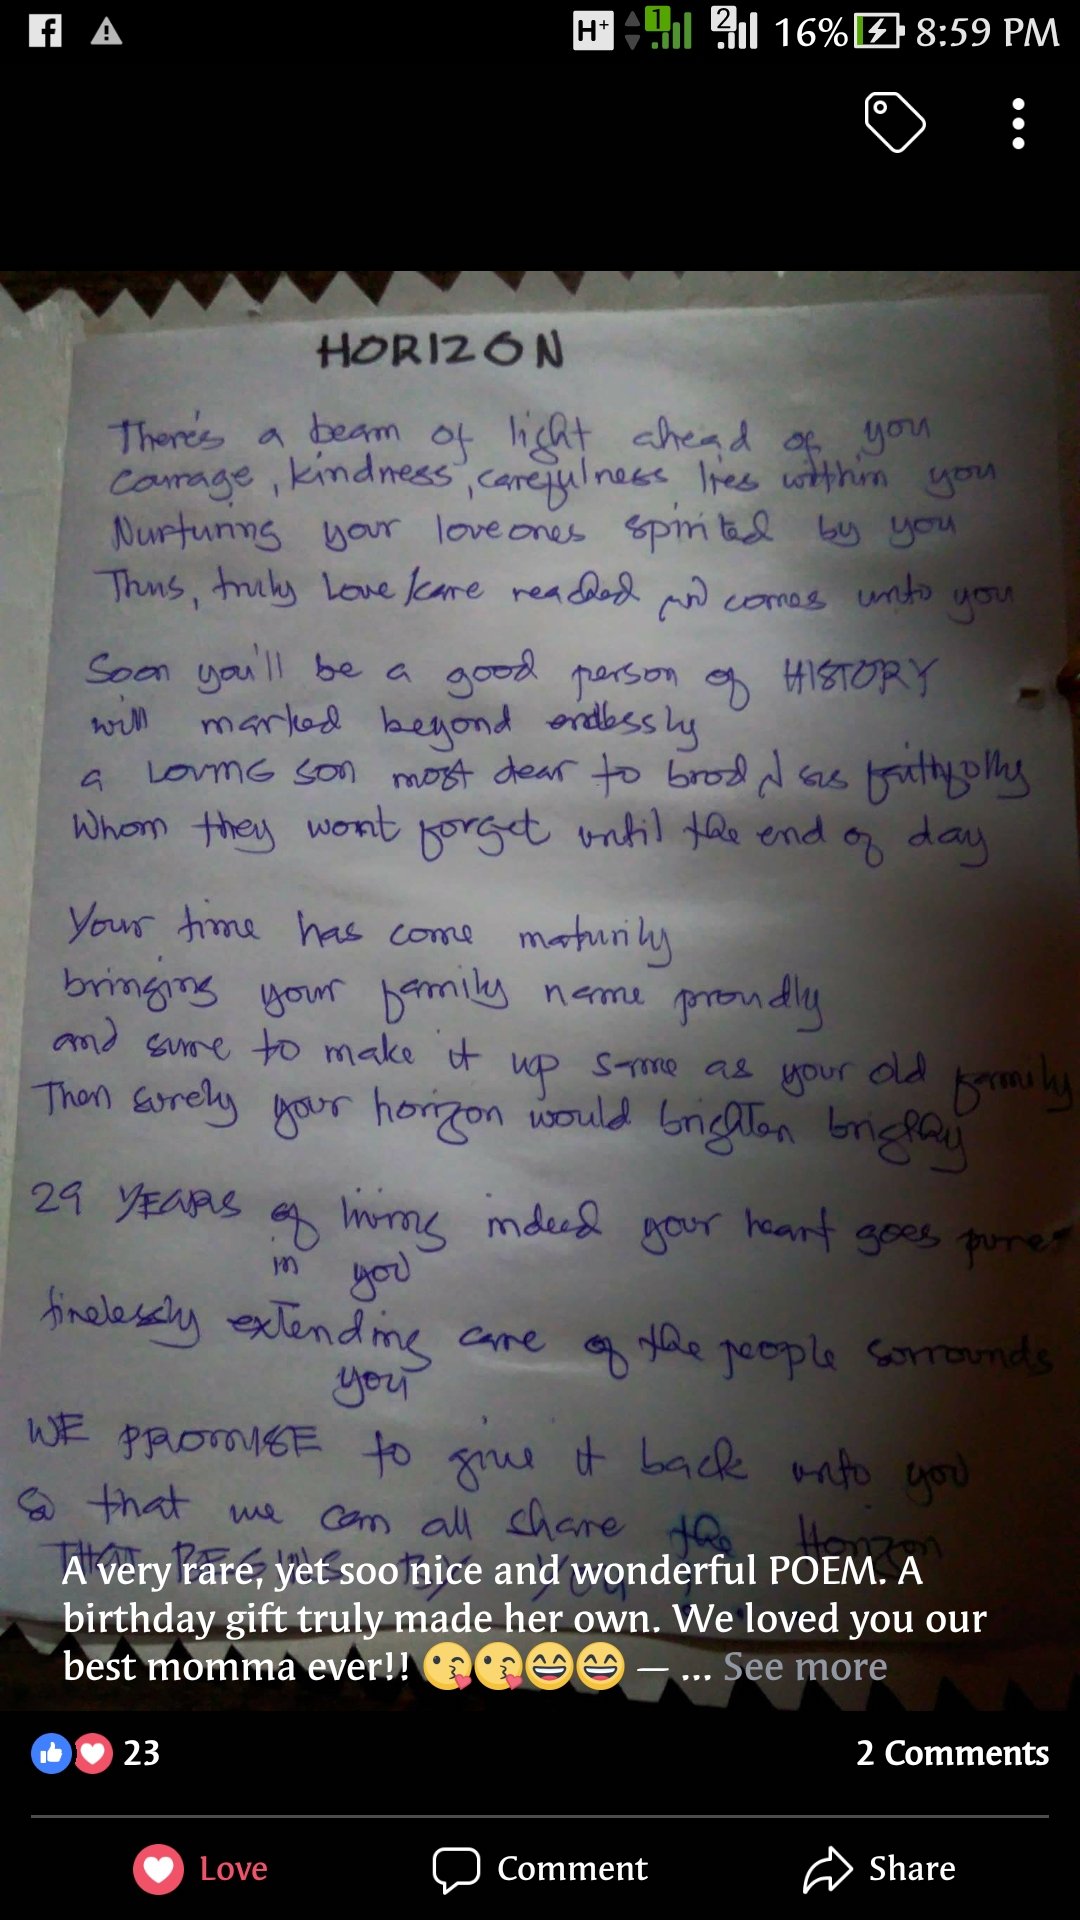 H+ 1 2 16% 8:59 PM
HORIZON
There's a beam of light ahead of you
courage, kindness, carefulness lies within you
Nurturing your loveones spirited by you
Thus, truly Love/care reached and comes unto you
Soon you'll be a good person of HISTORY
will marked beyond endlessly
a LOVING son most dear to brod & sis faithfolly
Whom they wont forget until the end of day
Your time has come maturily
bringing your family name proudly
and sure to make it up same as your old family
Then surely your horizon would brighten brightly
29 YEARS of living indeed your heart goes pure
in you
timelessly extending care of the people sorrounds
you
WE PROMISE to give it back unto you
So that we can all share the Horizon
THAT BEGINS BY YOU
A very rare, yet soo nice and wonderful POEM. A
birthday gift truly made her own. We loved you our
best momma ever!! 😘😘😄😄 — ... See more
23 2 Comments
Love Comment Share